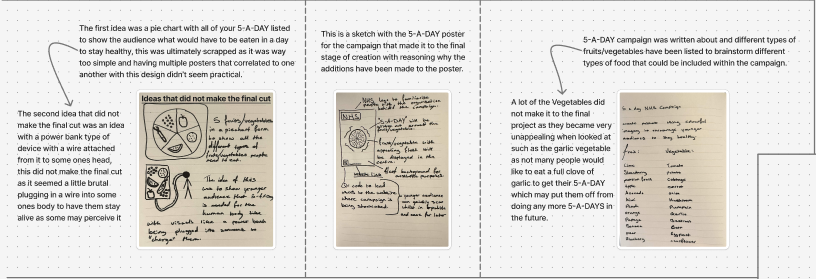 The first idea was a pie chart with all of your 5-A-DAY listed
to show the audience what would have to be eaten in a day
to stay healthy, this was ultimately scrapped as it was way
too simple and having multiple posters that correlated to one
another with this design didn't seem practical.
The second idea that did not
make the final cut was an idea
with a power bank type of
device with a wire attached
from it to some ones head,
this did not make the final cut
as it seemed a little brutal
plugging in a wire into some
ones body to have them stay
alive as some may perceive it
Ideas that did not make the final cut
5 fruits/vegetables
in a piechart form
to show all the
different types of
fruits/vegetables people
need to eat.
The idea of this
was to show younger
audience that
is needed for the
human body like
with visuals like a power bank
being plugged into someone to
"charge" them.
This is a sketch with the 5-A-DAY poster
for the campaign that made it to the final
stage of creation with reasoning why the
additions have been made to the poster.
NHS logo to familiarise
people with the organisation
behind the campaign.
NHS
"5-A-DAY" will be
fruits/vegetables.
fruits/vegetables with
appealing flesh will
be displayed in the
centre.
Website Link
QR code to lead
users to the website
campaign is
being showcased.
younger audience
can quickly scan
and save for later
5-A-DAY campaign was written about and different types of
fruits/vegetables have been listed to brainstorm different
types of food that could be included within the campaign.
A lot of the Vegetables did
not make it to the final
project as they became very
unappealing when looked at
such as the garlic vegetable
as not many people would
like to eat a full clove of
garlic to get their 5-A-DAY
which may put them off from
doing any more 5-A-DAYS in
the future.
5 a day NHS Campaign
create posters using colourful
imagery to encourage younger
audience to stay healthy
Fruit: Vegetable:
Lime Tomato
Strawberry Potato
passion fruit Cabbage
apple carrot
Avocado onion
Kiwi Mushroom
Peach Pumpkin
orange Garlic
Papaya
Banana Beet
Pear Eggplant
Blueberry cauliflower